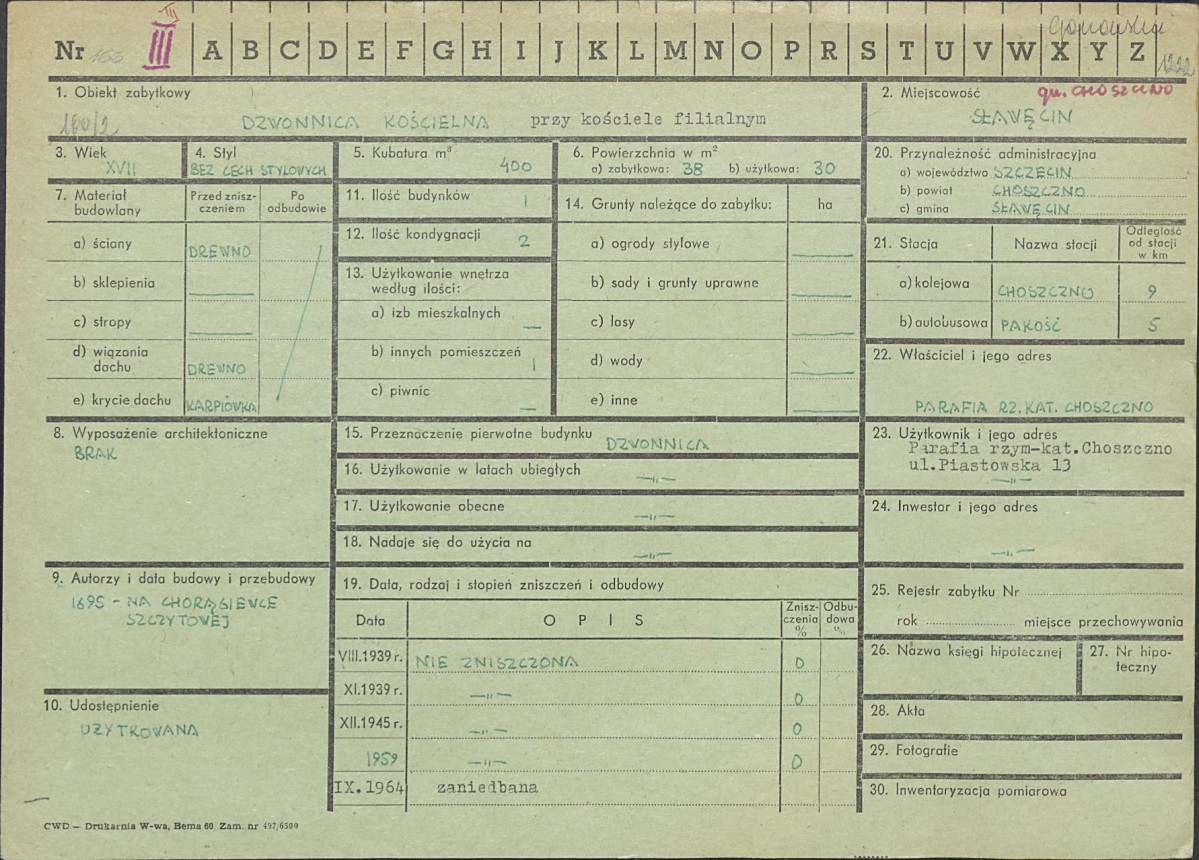 Nr III III A B C D E F G H I J K L M N O P R S T U V W X Y Z
1222
1. Obiekt zabytkowy
160/2 DZWONNICA KOŚCIELNA przy kościele filialnym
2. Miejscowość gm. CHOSZCZNO
SŁAWĘCIN
3. Wiek
XVII
4. Styl
BEZ CECH STYLOWYCH
5. Kubatura m³
400
6. Powierzchnia w m²
a) zabytkowa: 38 b) użytkowa: 30
20. Przynależność administracyjna
a) województwo SZCZECIN
b) powiat CHOSZCZNO
c) gmina SŁAWĘCIN
7. Materiał budowlany
Przed znisz-
czeniem
Po
odbudowie
a) ściany DREWNO
b) sklepienia —
c) stropy —
d) wiązania
dachu DREWNO
e) krycie dachu KARPIÓWKA
11. Ilość budynków 1
12. Ilość kondygnacji 2
13. Użytkowanie wnętrza
według ilości:
a) izb mieszkalnych —
b) innych pomieszczeń 1
c) piwnic —
14. Grunty należące do zabytku: ha
a) ogrody stylowe —
b) sady i grunty uprawne —
c) lasy —
d) wody —
e) inne —
21. Stacja Nazwa stacji
Odległość
od stacji
w km
a) kolejowa CHOSZCZNO 9
b) autobusowa PAKOŚĆ 5
22. Właściciel i jego adres
PARAFIA RZ. KAT. CHOSZCZNO
8. Wyposażenie architektoniczne
BRAK
15. Przeznaczenie pierwotne budynku DZWONNICA
16. Użytkowanie w latach ubiegłych —„—
17. Użytkowanie obecne —„—
18. Nadaje się do użycia na —„—
23. Użytkownik i jego adres
Parafia rzym-kat.Choszczno
ul.Piastowska 13
—„—
24. Inwestor i jego adres
—„—
9. Autorzy i data budowy i przebudowy
1695 - NA CHORĄGIEWCE
SZCZYTOWEJ
19. Data, rodzaj i stopień zniszczeń i odbudowy
Data O P I S
Znisz-
czenia
%
Odbu-
dowa
%
VIII.1939 r. NIE ZNISZCZONA 0
XI.1939 r. —„— 0
XII.1945 r. —„— 0
1959 —„— 0
IX.1964 zaniedbana
25. Rejestr zabytku Nr
rok miejsce przechowywania
26. Nazwa księgi hipotecznej
27. Nr hipo-
teczny
28. Akta
29. Fotografie
30. Inwentaryzacja pomiarowa
10. Udostępnienie
UŻYTKOWANA
CWD — Drukarnia W-wa, Bema 60 Zam. nr 497/6500